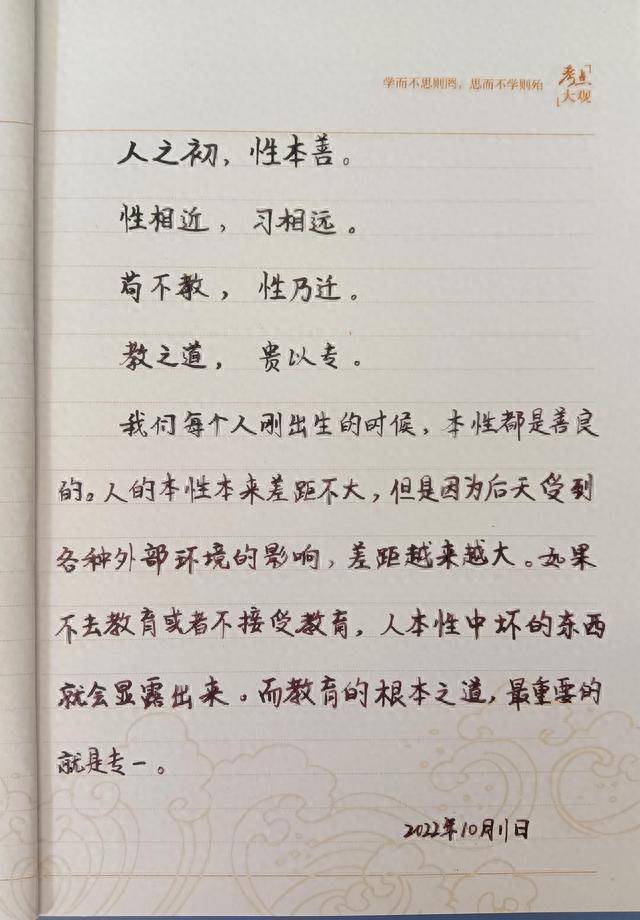 学而不思则罔，思而不学则殆
考点
大观
人之初，性本善。
性相近，习相远。
苟不教，性乃迁。
教之道，贵以专。
我们每个人刚出生的时候，本性都是善良
的。人的本性本来差距不大，但是因为后天受到
各种外部环境的影响，差距越来越大。如果
不去教育或者不接受教育，人本性中坏的东西
就会显露出来。而教育的根本之道，最重要的
就是专一。
2022年10月1日